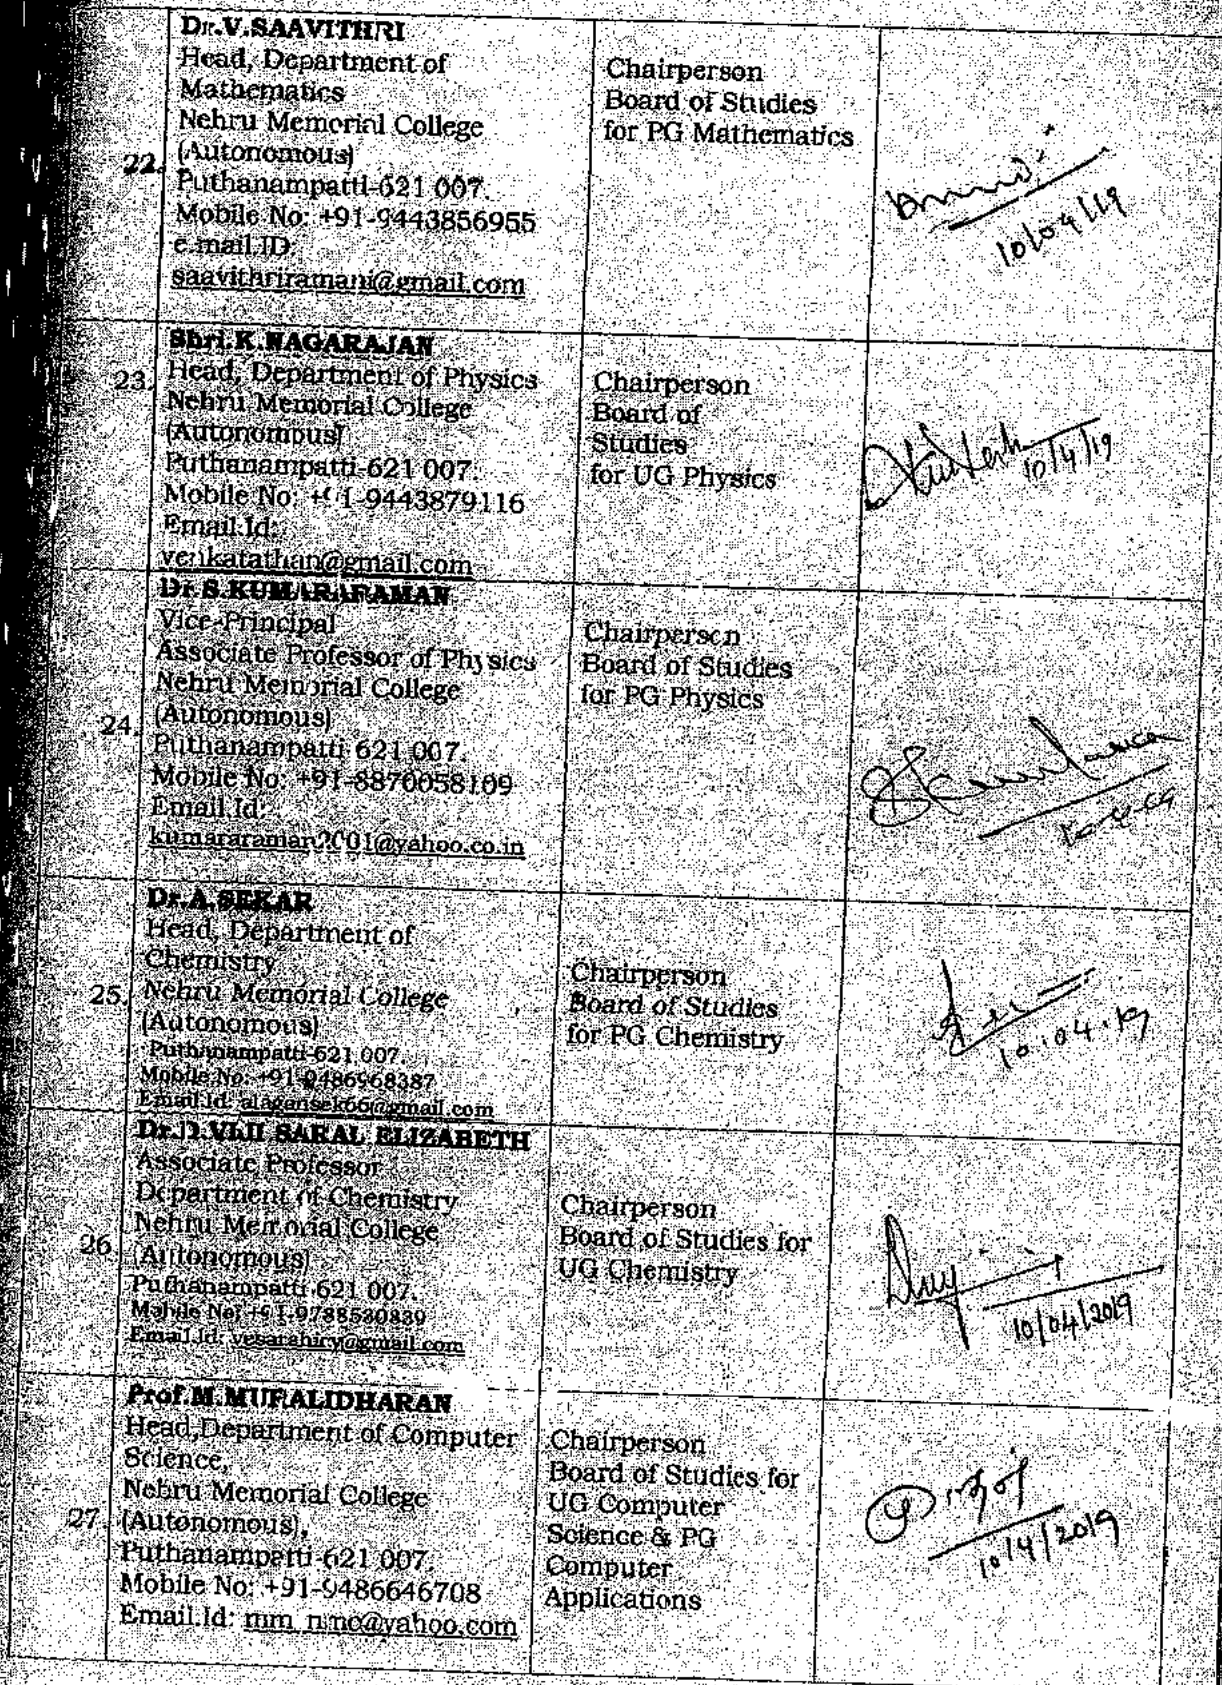 Dr.V.SAAVITHRI
Head, Department of
Mathematics
Nehru Memorial College
(Autonomous)
22.
Puthanampatti-621 007.
Mobile No: +91-9443856955
e.mail.ID:
saavithriramani@gmail.com
Chairperson
Board of Studies
for PG Mathematics
10/04/19
Shri.K.NAGARAJAN
23. Head, Department of Physics
Nehru Memorial College
(Autonomous)
Puthanampatti-621 007.
Mobile No: +91-9443879116
Email.Id:
venkatathan@gmail.com
Chairperson
Board of
Studies
for UG Physics
10/4/19
Dr.S.KUMARARAMAN
Vice-Principal
Associate Professor of Physics
Nehru Memorial College
24. (Autonomous)
Puthanampatti-621 007.
Mobile No: +91-8870058109
Email.Id:
kumararaman2001@yahoo.co.in
Chairperson
Board of Studies
for PG Physics
Dr.A.SEKAR
Head, Department of
Chemistry
25. Nehru Memorial College
(Autonomous)
Puthanampatti-621 007.
Mobile.No: +91-9486968387
Email.Id: alagansek66@gmail.com
Chairperson
Board of Studies
for PG Chemistry
10.04.19
SARAL ELIZABETH
Associate Professor
Department of Chemistry
Nehru Memorial College
26 (Autonomous)
Puthanampatti-621 007.
Mobile No: +91-9788530839
Email.Id:
Chairperson
Board of Studies for
UG Chemistry
10/04/2019
Prof.M.MURALIDHARAN
Head,Department of Computer
Science,
Nehru Memorial College
27 (Autonomous),
Puthanampatti-621 007.
Mobile No: +91-9486646708
Email.Id: mm_nmc@yahoo.com
Chairperson
Board of Studies for
UG Computer
Science & PG
Computer
Applications
10/4/2019